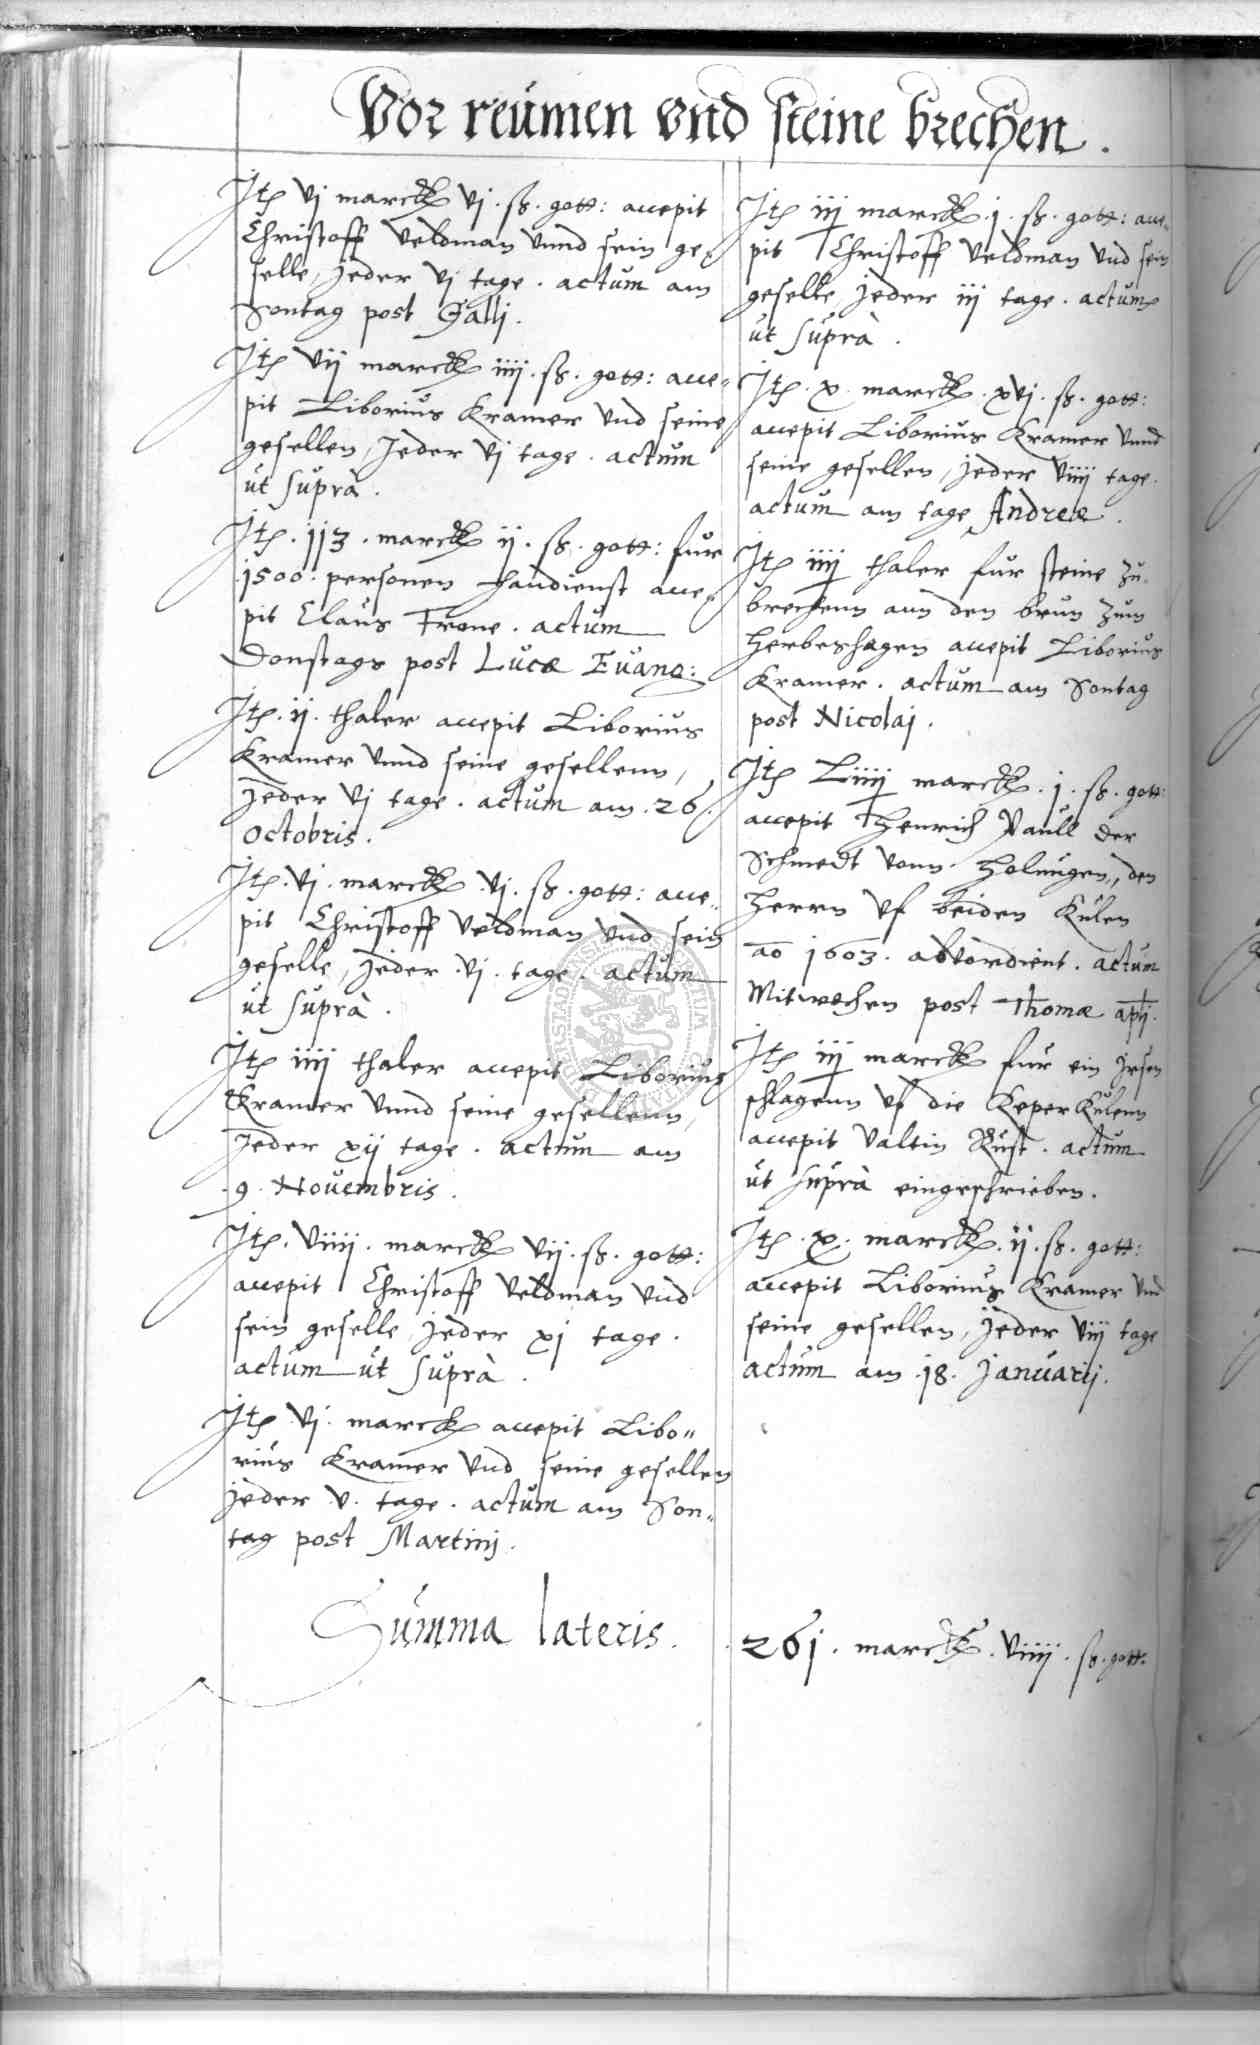 Vor reumen vnd steine brechen.
Itē vj marck vj. ß. gott: accepit
Christoff Veldman vnnd sein ge-
selle, jeder vj tage. actum am
Sontag post Galli.
Itē vij marck iiij. ß. gott: acce-
pit Liborius Kramer vnd seine
gesellen, Jeder vj tage. actum
ut suprà.
Itē. 113. marck ij. ß. gott: fur
1500. personen handienst acce-
pit Claus Frone. actum
Donstags post Lucæ Euang:
Itē. ij. thaler accepit Liborius
Kramer vnnd seine gesellenn,
Jeder vj tage. actum am. 26.
Octobris.
Itē. vj. marck vj. ß. gott: acce-
pit Christoff Veldman vnd sein
geselle, jeder .vj. tage. actum
ut suprà.
Itē iiij thaler accepit Liborius
Kramer vnnd seine gesellenn,
Jeder xij tage. actum am
.9. Nouembris.
Itē. viiij. marck vij. ß. gott:
accepit Christoff Veldman vnd
sein geselle, jeder xj tage.
actum ut suprà.
Itē .vj. marck accepit Libo-
rius Kramer vnd seine gesellen
jeder .v. tage. actum am Son-
tag post Martini.
Itē iij marck .j. ß. gott: acce-
pit Christoff Veldman vnd sein
geselle, jeder iij tage. actum
ut suprà.
Itē .x. marck .xvj. ß. gott:
accepit Liborius Kramer vnnd
seine gesellen, jeder viiij tage.
actum am tage Andreæ.
Itē iiij thaler fur steine zu-
brechenn ann den brun zum
Herbeshagen accepit Liborius
Kramer. actum am Sontag
post Nicolaj.
Itē Liiij marck .j. ß. gott:
accepit Henrich Paull der
Schmedt vonn Holungen, den
Herrn vf beiden Kulen
ao 1603. abvordient. actum
Mitwochen post Thomæ apli.
Itē iij marck fur ein
schlagenn vf die Keper Kulenn
accepit Valtin Rust. actum
ut suprà eingeschrieben.
Itē .x. marck .ij. ß. gott:
accepit Liborius Kramer vnd
seine gesellen, jeder viij tage
actum am .18. Januarij.
Summa lateris. 261. marck. viiij. ß. gott: